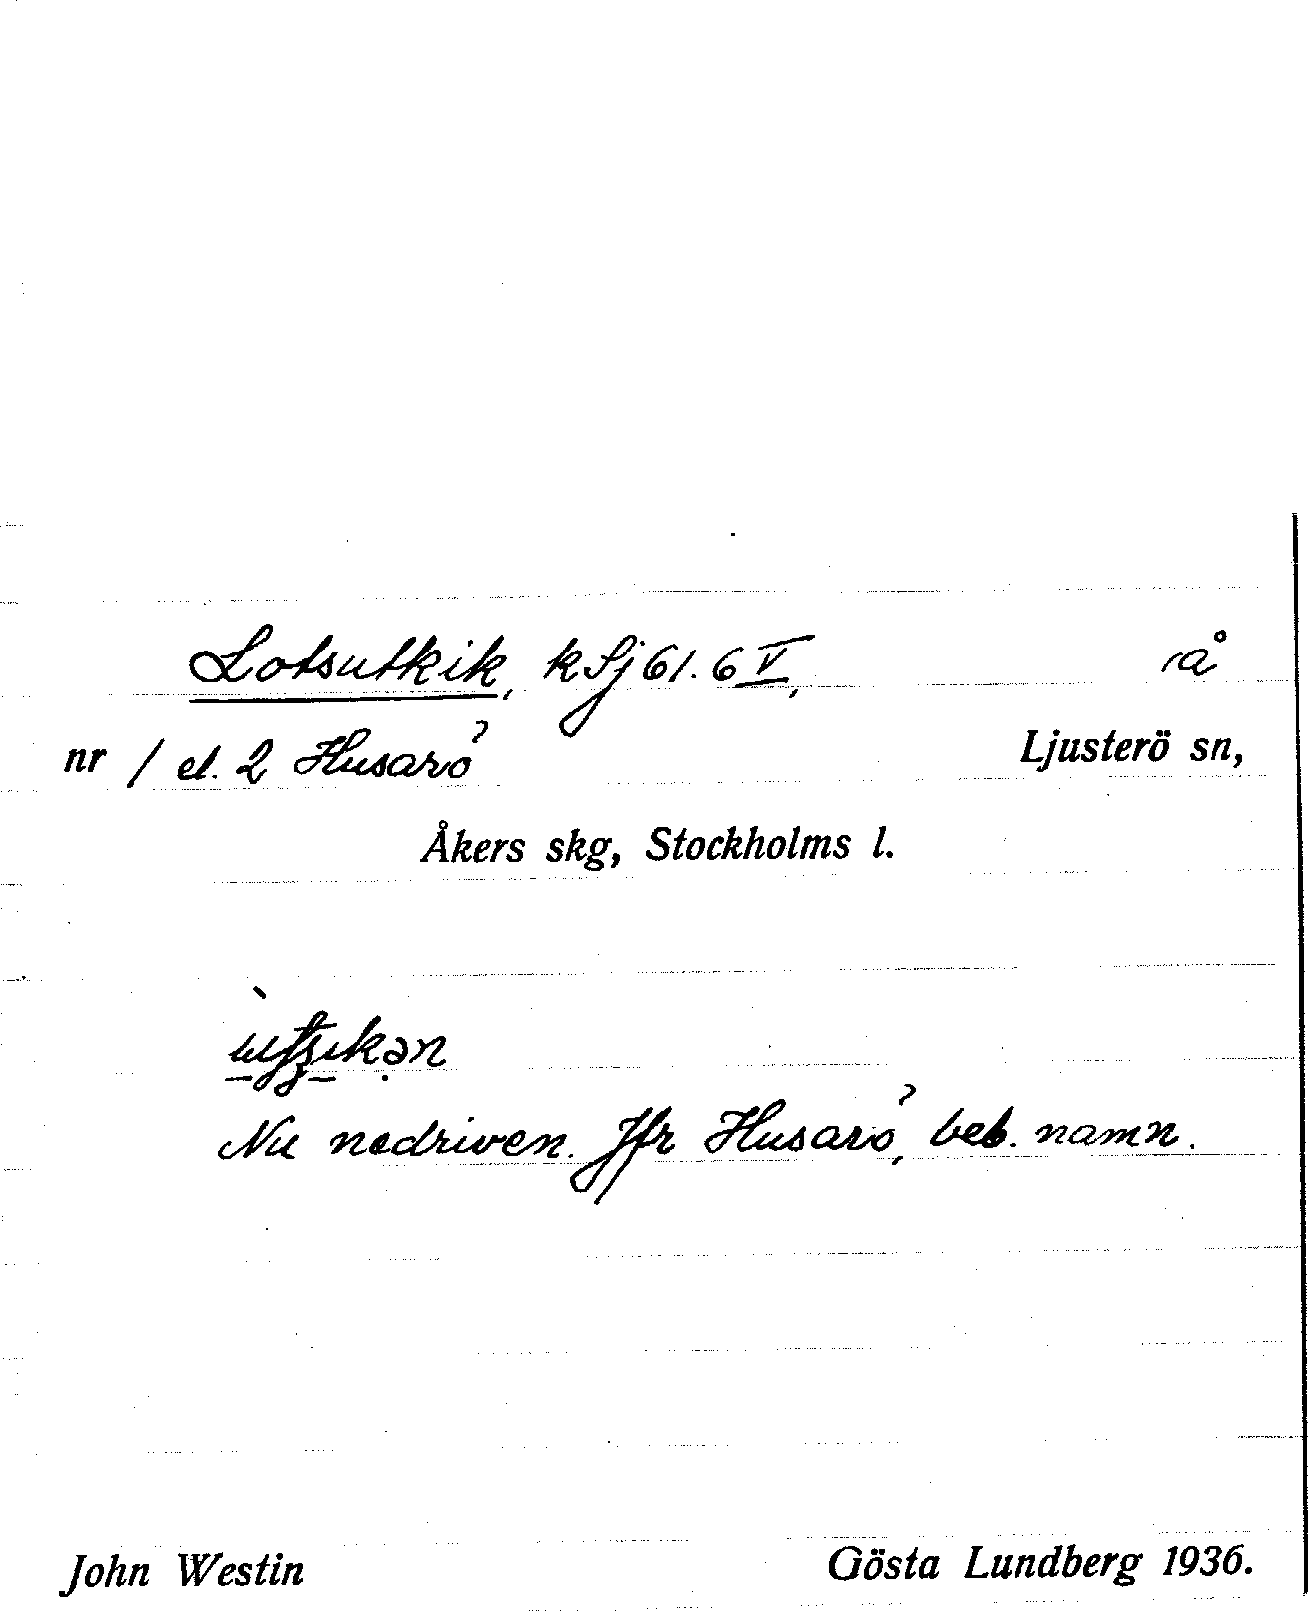 Lotsutkik, k Sj 61. 6 V, på
nr 1 el. 2 Husarö Ljusterö sn,
Åkers skg, Stockholms l.
Nu nedriven. Jfr Husarö, beb. namn.
John Westin Gösta Lundberg 1936.